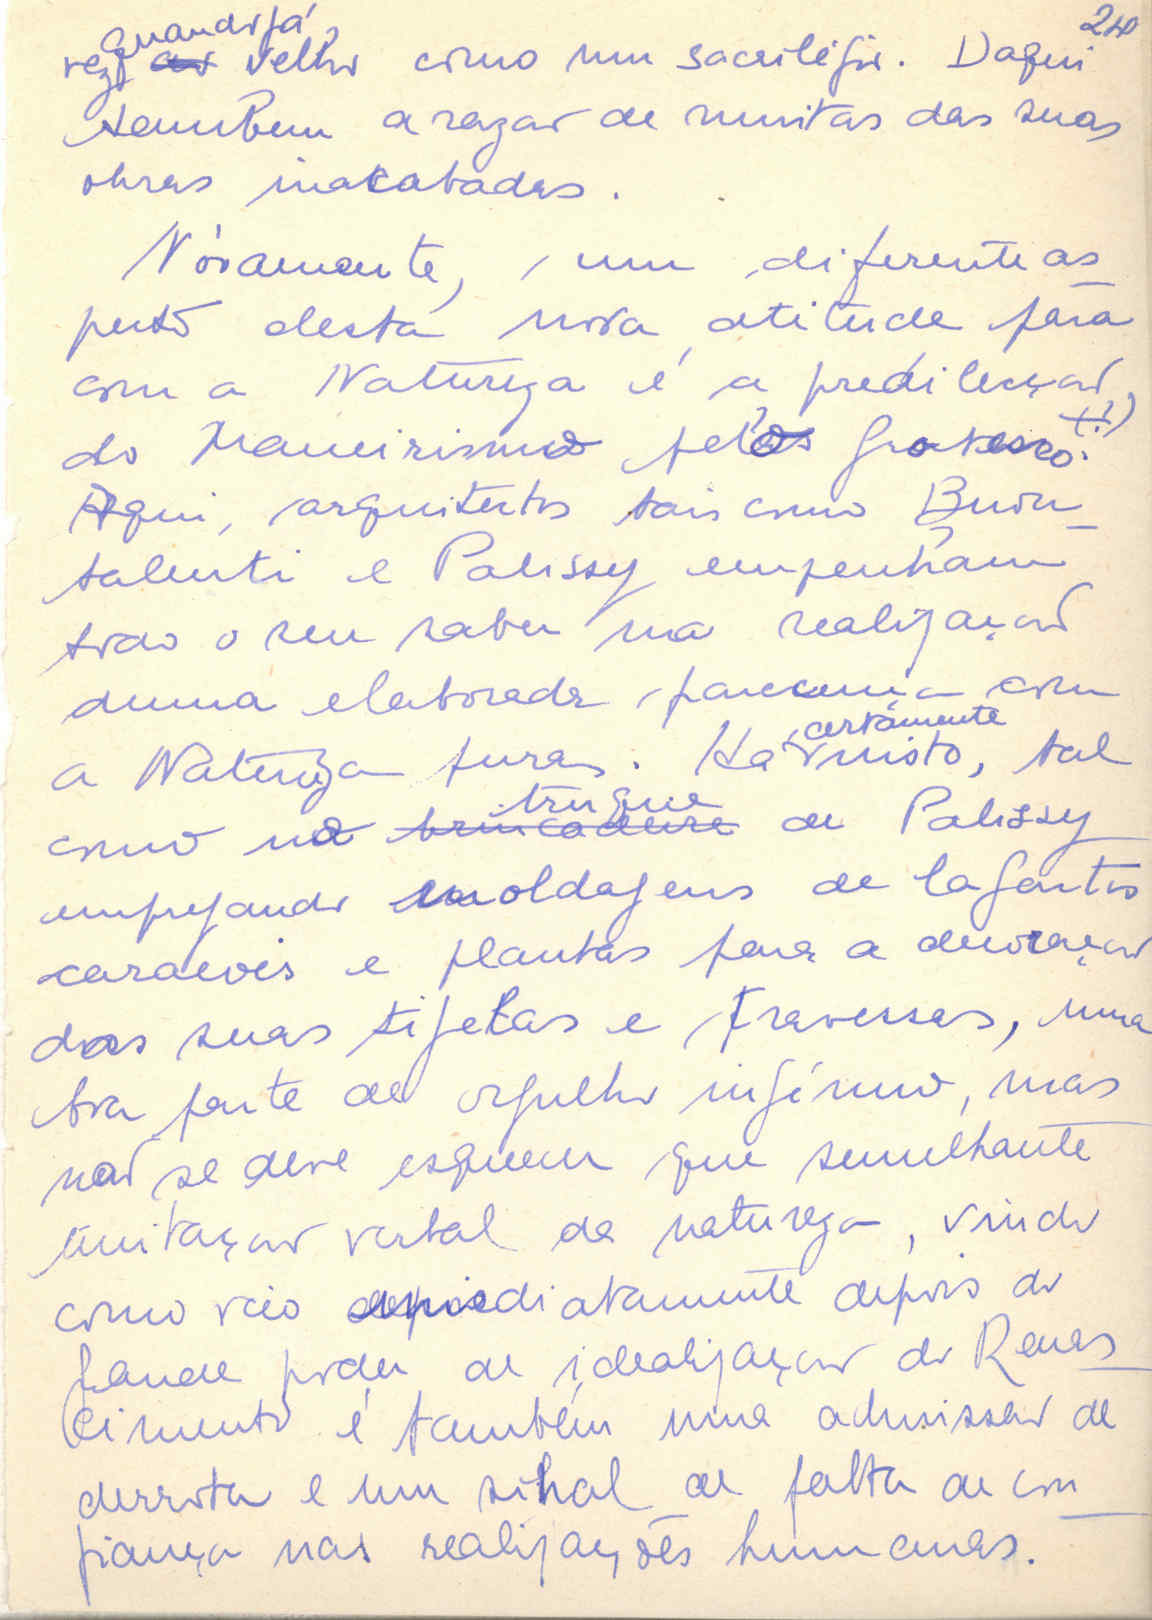 24
quando já
vez ao velho como um sacrilégio. Daqui
tambem a razão de muitas das suas
obras inacabadas.
Nóvamente, um diferente as
pecto desta nova atitude para
com a Natureza é a predilecção
do Maneirismo pelo Grotesco (!)
Aqui, arquitectos tais como Buon
talenti e Palissy empenham
todo o seu saber na realização
duma elaborada parecença com
a Natureza pura. Há certamente nisto, tal
como no brincadeira truque de Palissy
empregando moldagens de lagartos
caracois e plantas para a decoração
das suas tijelas e travessas, uma
boa parte de orgulho ingénuo, mas
não se deve esquecer que semelhante
imitação verbal da natureza, vindo
como veio imediatamente depois do
grande poder de idealização do Renas
cimento é também uma admissão de
derrota e um sinal de falta de con
fiança nas realizações humanas.